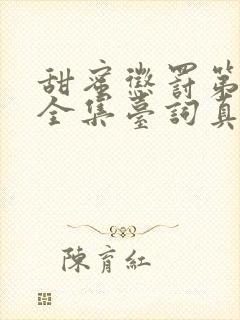 甜蜜懲罰第
全集臺詞真
陳育紅